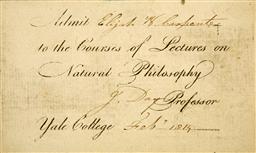 Admit Elizb. H Carpenter
to the Courses of Lectures on
Natural Philosophy
J. Day Professor
Yale College Feby 1814